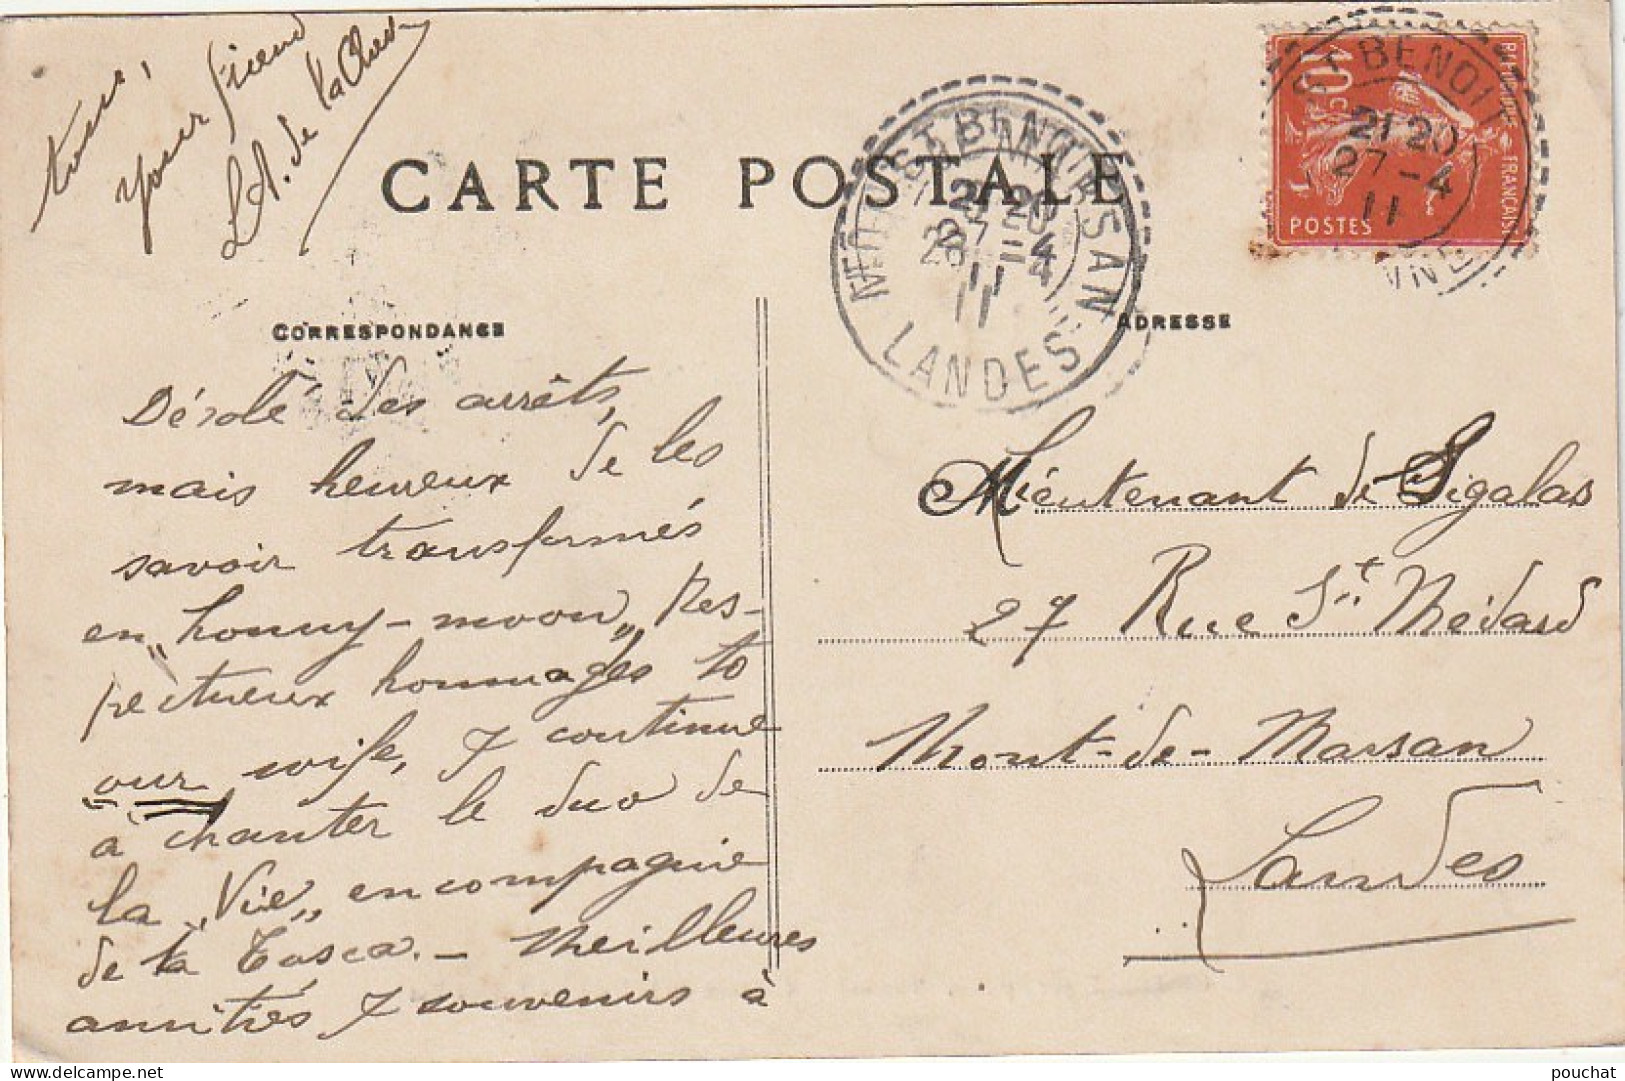 CARTE POSTALE
CORRESPONDANCE
ADRESSE
Désolé des arrêts,
mais heureux de les
savoir transformés
en „honny-moon„ Res-
pectueux hommages to
our wife, J continue
à chanter le duo de
la „Vie„ en compagnie
de la Tosca. - Meilleures
amitiés & souvenirs à
tous,
your friend
L.A. de la
Lieutenant de Sigalas
27 Rue St Médard
Mont-de-Marsan
Landes
ST BENOIT
21 20
27 - 4
11
10 c
POSTES
REPUBLIQUE FRANÇAISE
MONT DE MARSAN
LANDES
ST BENOIT
21 20
27 - 4
11
28 - 4
11
pouchat